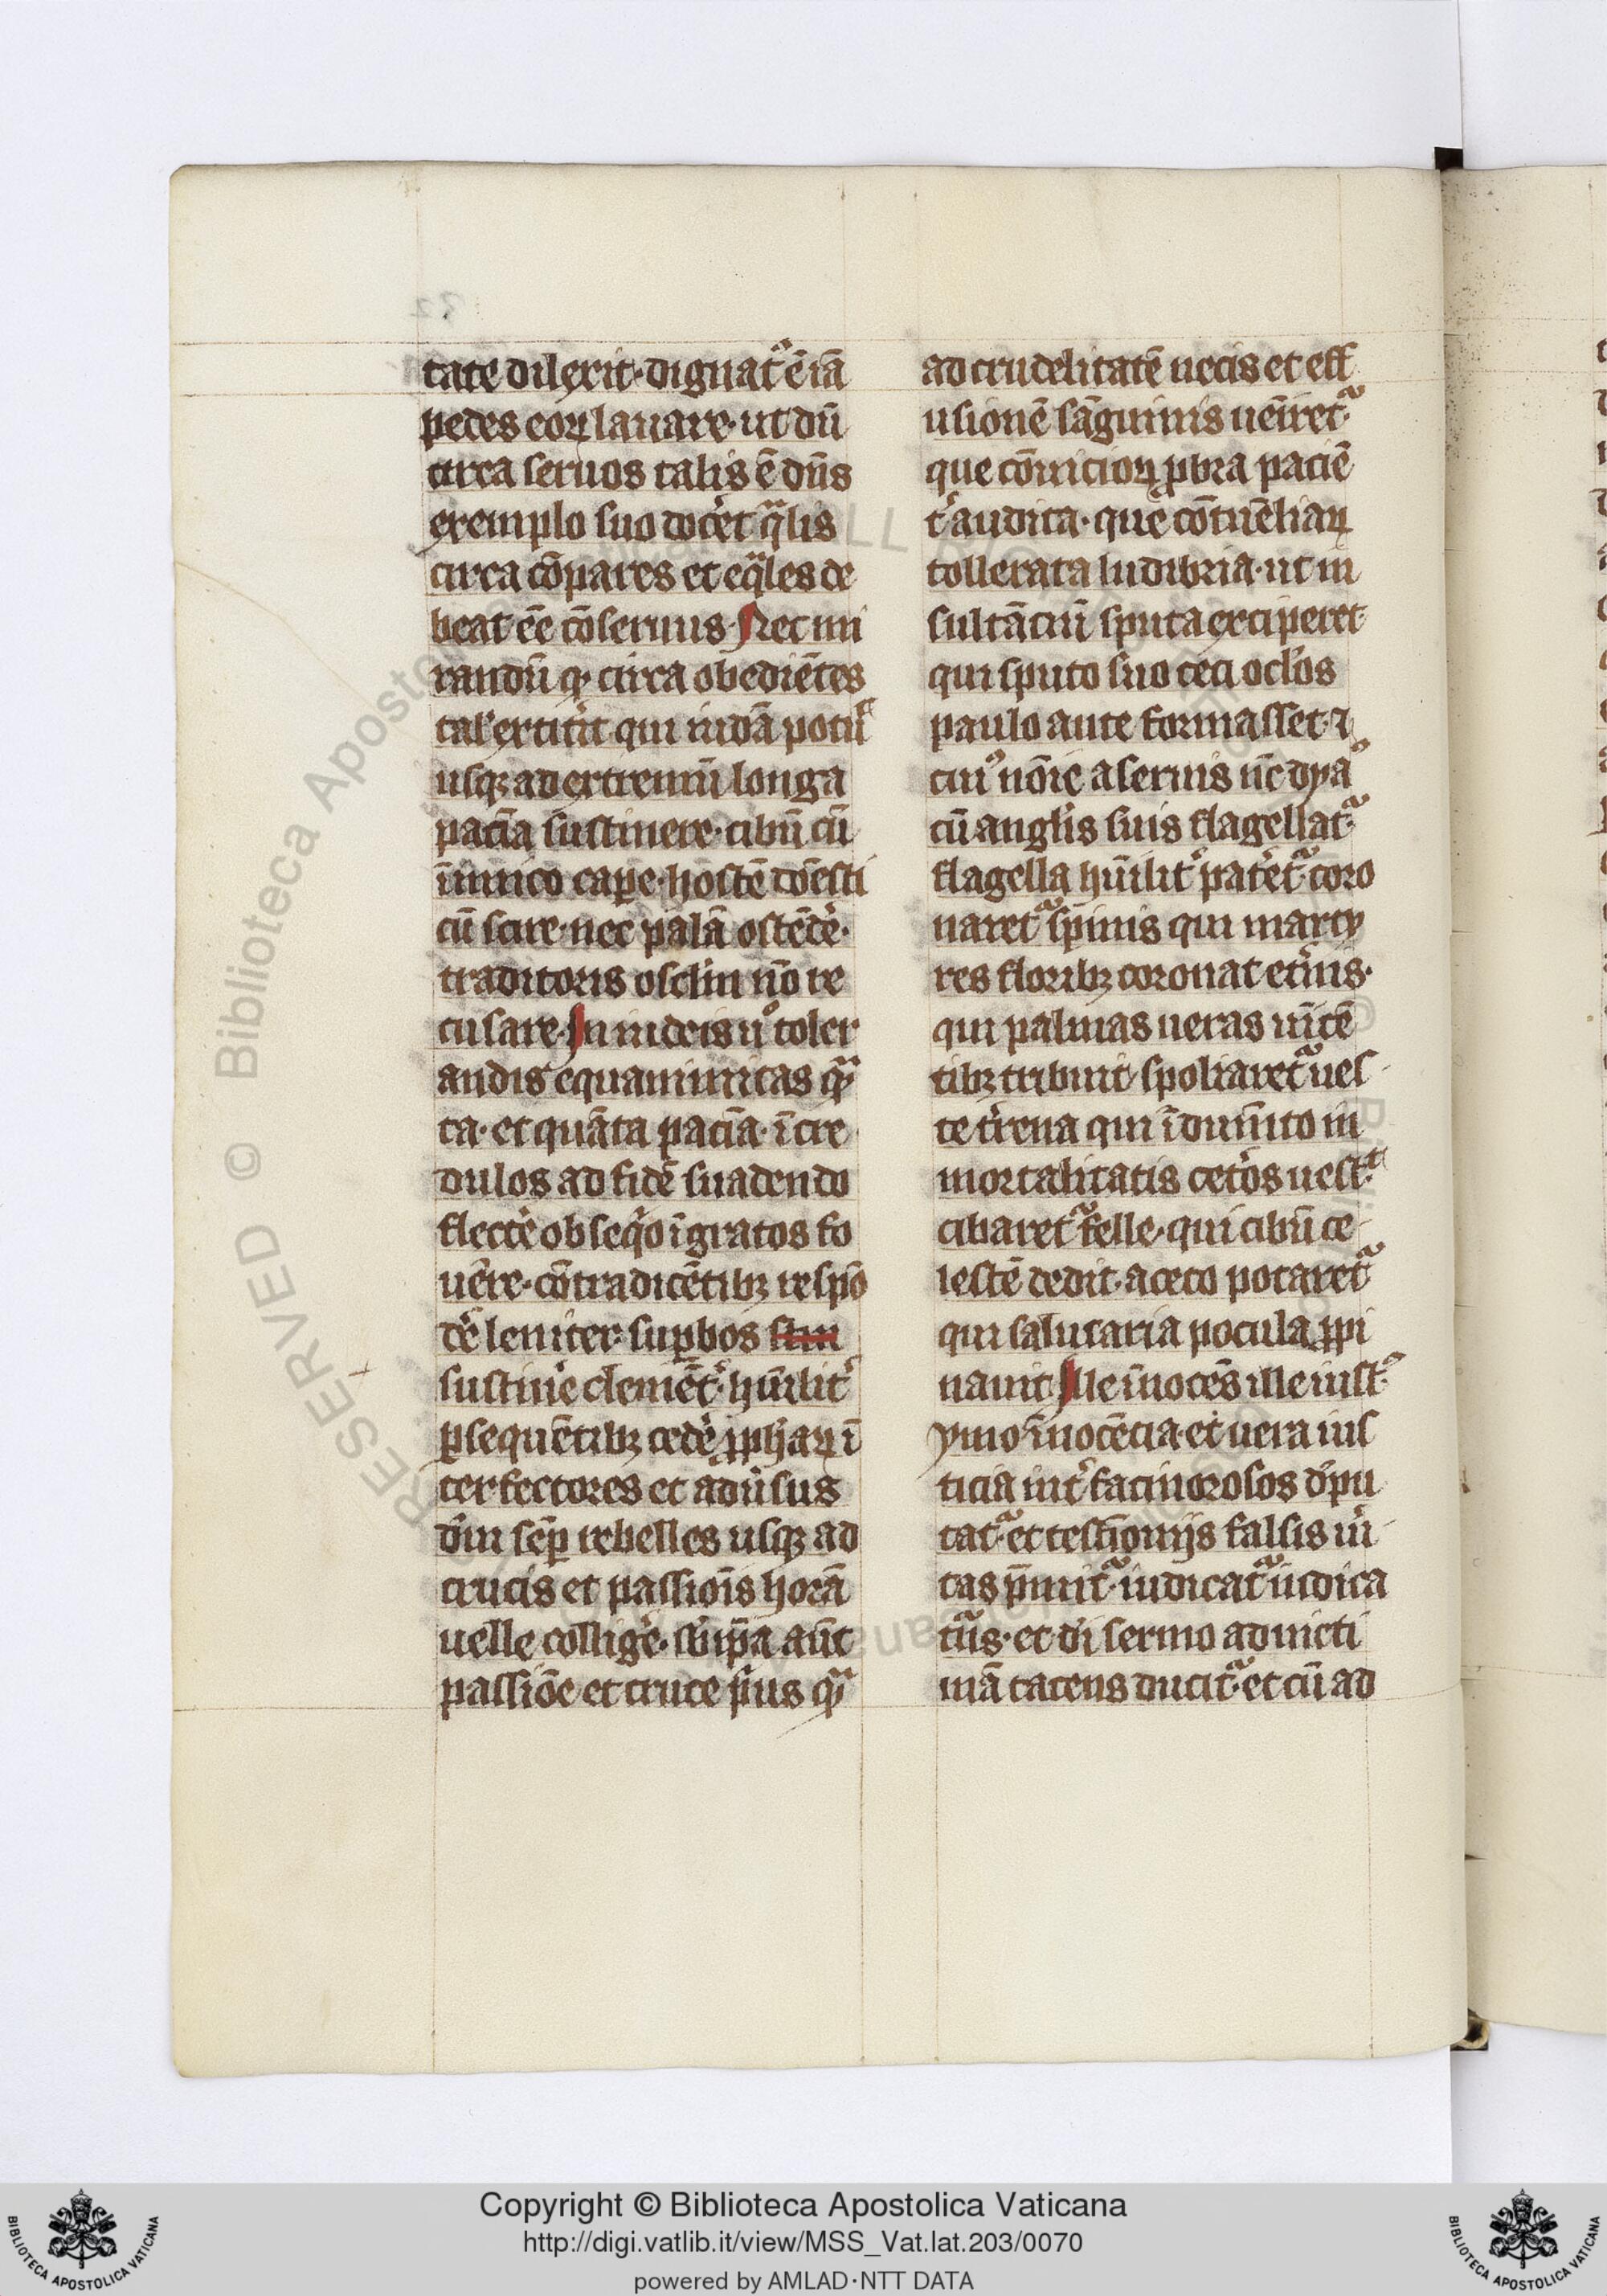 tate dilexit·dignatᷣ ē iā
pedes eoꝝ lauare·ut dū
circa seruos talis ē dn̄s
exemplo suo docet qͣlis
circa cōpares et eqͣles de
beat ēe cōseruus·Nec mi
randū ꝙ circa obediētes
tal' extitit qui iudā potuͥ
usqꝫ ad extremū longa
pacīa sustinere·cibū cū
īimico cape·hostē dōesti
cū scire·nec palā ostēdē·
traditoris oscl̄m nō re
cusare·In iudeis uͦ toler
andis equanimitas qͣ
ta·et quāta pacīa·īcre
dulos ad fidē suadendo
flectē obseqͦ īgratos fo
uēre·cōntradicētibꝫ respō
dē leniter·suꝑbos stin
sustinē clemēt̾·hūilit̾
ꝑsequētibꝫ cedē ꝓph̄aꝝ ī
terfectores et adūsus
dm̄ sēꝑ rebelles usqꝫ ad
crucis et passiōis horā
uelle colligē·s; ip̄a aūt
passiōe et cruce pͥus qͣ
ad crudelitatē necis et eff
usionē sāguinis uēiretᷣ
que cōuicioꝝ ꝓbra paciē
t̾ audita·que cōtuēliaꝝ
tollerata ludibria·ut in
sultāciū sputa exciperet
qui sputo suo ceci ocl'os
paulo ante formasset·⁊
cuiꝰ nōīe a seruis nc̄ dyaꝰ
cū angl'is suis flagellatᷣ
flagella hūilit̾ patetᷣ·coro
naretᷣ spinis qui marty
res floribꝫ coronat et̾nis·
qui palmas ueras uīcē
tibꝫ tribuit·spoliaretᷣ ues
te t̾rena qui īdumīto in
mortalitatis cet̾os uestͭ
cibaretᷣ felle·qui cibū ce
lestē dedit·aceto potaretᷣ
qui salutaria pocula ꝓpi
nauit·Ille īnocēs ille iustꝰ
ymo īnocēcia·et uera ius
ticia int̾ facinorosos d'pu
tatᷣ·et testīonijs falsis u̾i
tas p̄mitᷣ·iudicatᷣ iudica
tᷣus·et di̾ sermo ad uicti
mā tacens ducitᷣ·et cū ad
Copyright © Biblioteca Apostolica Vaticana
http://digi.vatlib.it/view/MSS_Vat.lat.203/0070
powered by AMLAD·NTT DATA
BIBLIOTECA APOSTOLICA VATICANA
BIBLIOTECA APOSTOLICA VATICANA